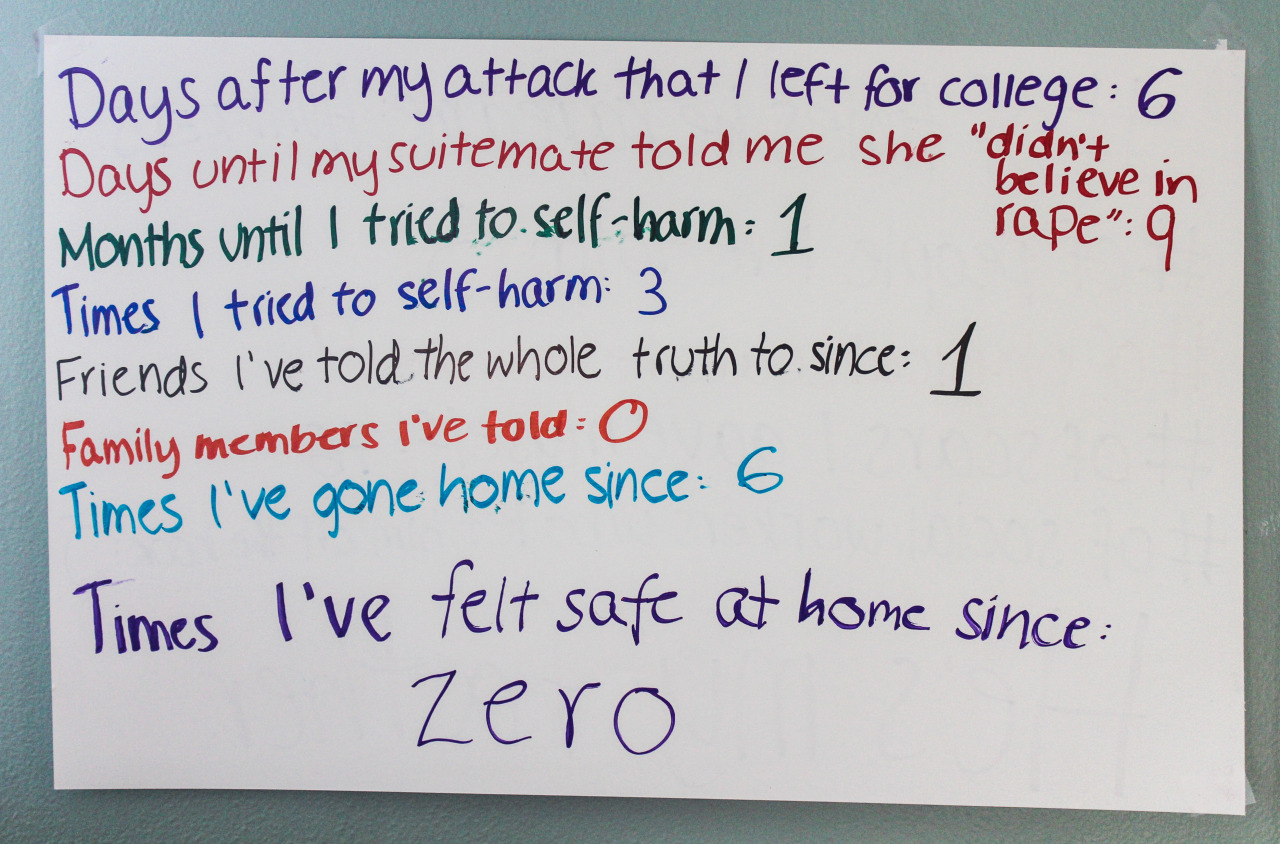 Days after my attack that I left for college: 6
Days until my suitemate told me she "didn't
believe in
rape": 9
Months until I tried to self-harm: 1
Times I tried to self-harm: 3
Friends I've told the whole truth to since: 1
Family members I've told: 0
Times I've gone home since: 6
Times I've felt safe at home since:
zero